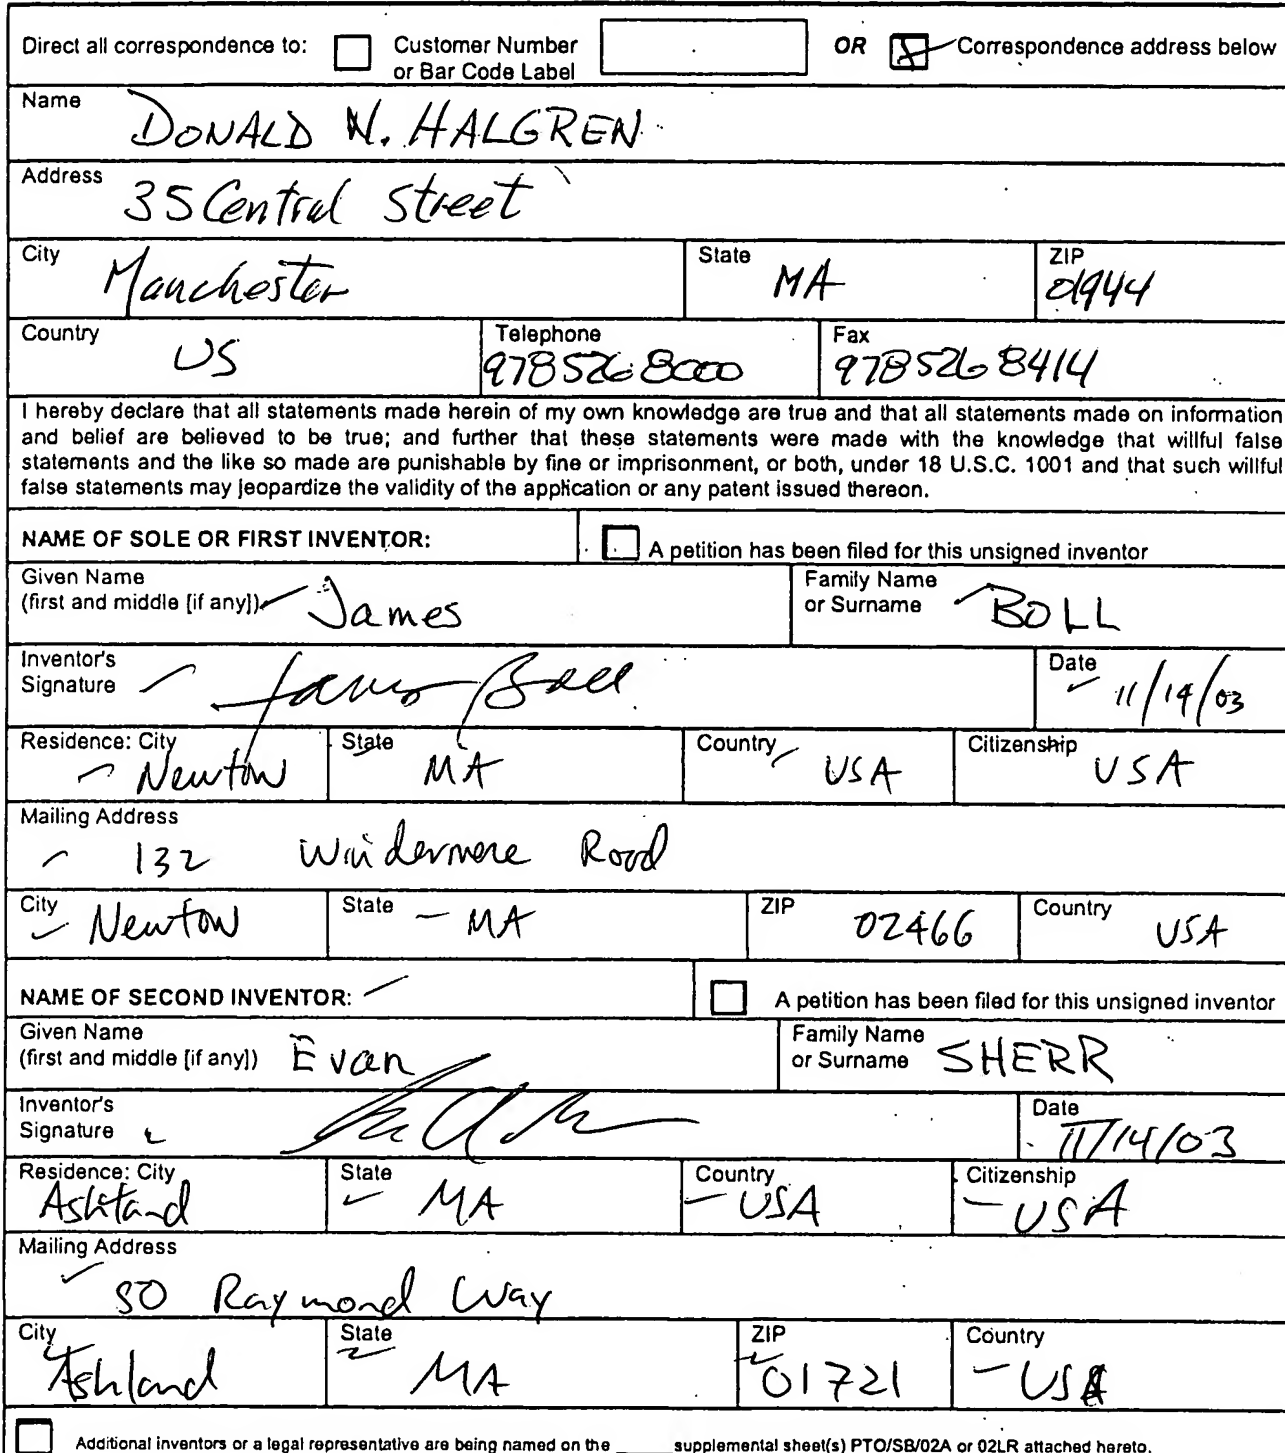 Direct all correspondence to: Customer Number or Bar Code Label OR Correspondence address below
Name DONALD N. HALGREN
Address 35 Central Street
City Manchester State MA ZIP 01944
Country US Telephone 9785268000 Fax 9785268414
I hereby declare that all statements made herein of my own knowledge are true and that all statements made on information
and belief are believed to be true; and further that these statements were made with the knowledge that willful false
statements and the like so made are punishable by fine or imprisonment, or both, under 18 U.S.C. 1001 and that such willful
false statements may jeopardize the validity of the application or any patent issued thereon.
NAME OF SOLE OR FIRST INVENTOR: A petition has been filed for this unsigned inventor
Given Name (first and middle [if any]) James Family Name or Surname BOLL
Inventor's Signature James Boll Date 11/14/03
Residence: City Newton State MA Country USA Citizenship USA
Mailing Address
132 Windermere Road
City Newton State MA ZIP 02466 Country USA
NAME OF SECOND INVENTOR: A petition has been filed for this unsigned inventor
Given Name (first and middle [if any]) Evan Family Name or Surname SHERR
Inventor's Signature Date 11/14/03
Residence: City Ashland State MA Country USA Citizenship USA
Mailing Address
50 Raymond Way
City Ashland State MA ZIP 01721 Country USA
Additional inventors or a legal representative are being named on the _____ supplemental sheet(s) PTO/SB/02A or 02LR attached hereto.